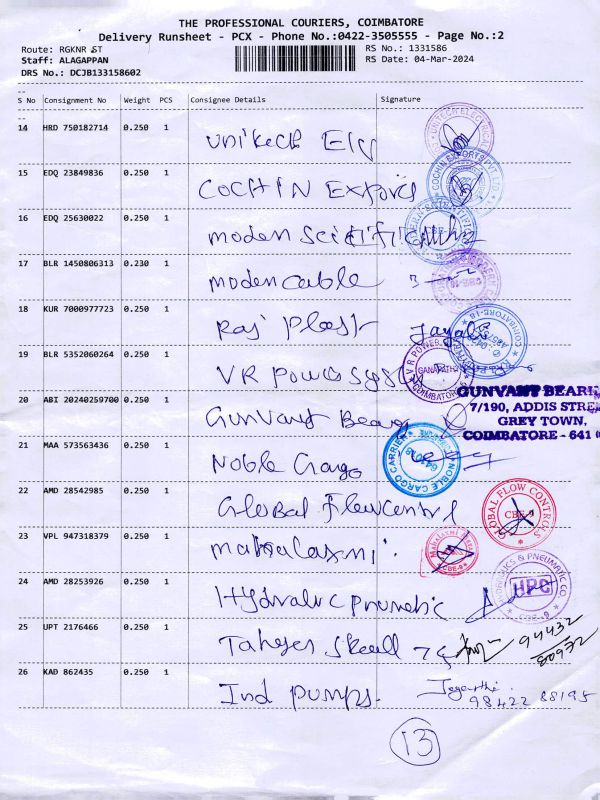 THE PROFESSIONAL COURIERS, COIMBATORE
Delivery Runsheet - PCX - Phone No.:0422-3505555 - Page No.:2
Route: RGKNR ST RS No.: 1331586
Staff: ALAGAPPAN RS Date: 04-Mar-2024
DRS No.: DCJB133158602
S No Consignment No Weight PCS Consignee Details Signature
14 HRD 750182714 0.250 1 Unikech
15 EDQ 23849836 0.250 1 COCHIN EXPORTS COCHIN EXPORTS PVT. LTD
16 EDQ 25630022 0.250 1 Moden Scientific
17 BLR 1450806313 0.230 1 Moden cable
18 KUR 7000977723 0.250 1 Raj Plast COIMBATORE-18
19 BLR 5352060264 0.250 1 VR Power System V R POWER GANAPATHY COIMBATORE-6
20 ABI 20240259700 0.250 1 Gunvant Bearg GUNVANT BEARIN
7/190, ADDIS STRE
GREY TOWN,
COIMBATORE - 641 0
21 MAA 573563436 0.250 1 Noble Cargo NOBLE CARGO CARRIER 641018
22 AMD 28542985 0.250 1 Global Flow Control GLOBAL FLOW CONTROLS CBE-9
23 VPL 947318379 0.250 1 Mahalaxmi Mahalaxmi CBE-9
24 AMD 28253926 0.250 1 Hydralic pnumetic HYDROLICS & PNEUMATIC CO. HPC CBE-9
25 UPT 2176466 0.250 1 94432
80972
26 KAD 862435 0.250 1 Ind pumps. Jayanthi
98422 88195
13